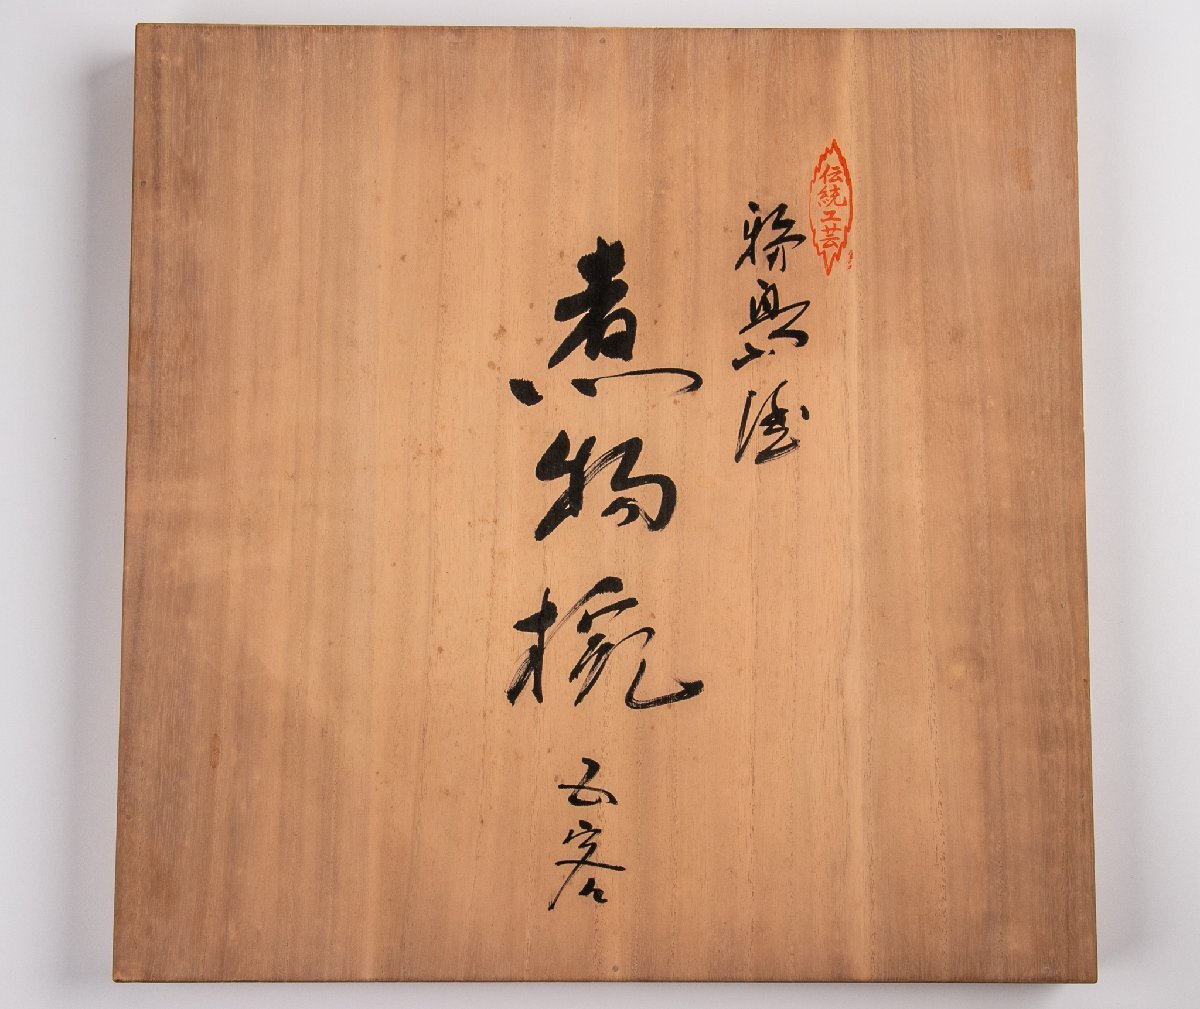 伝統工芸
輪島塗
煮物椀
五客